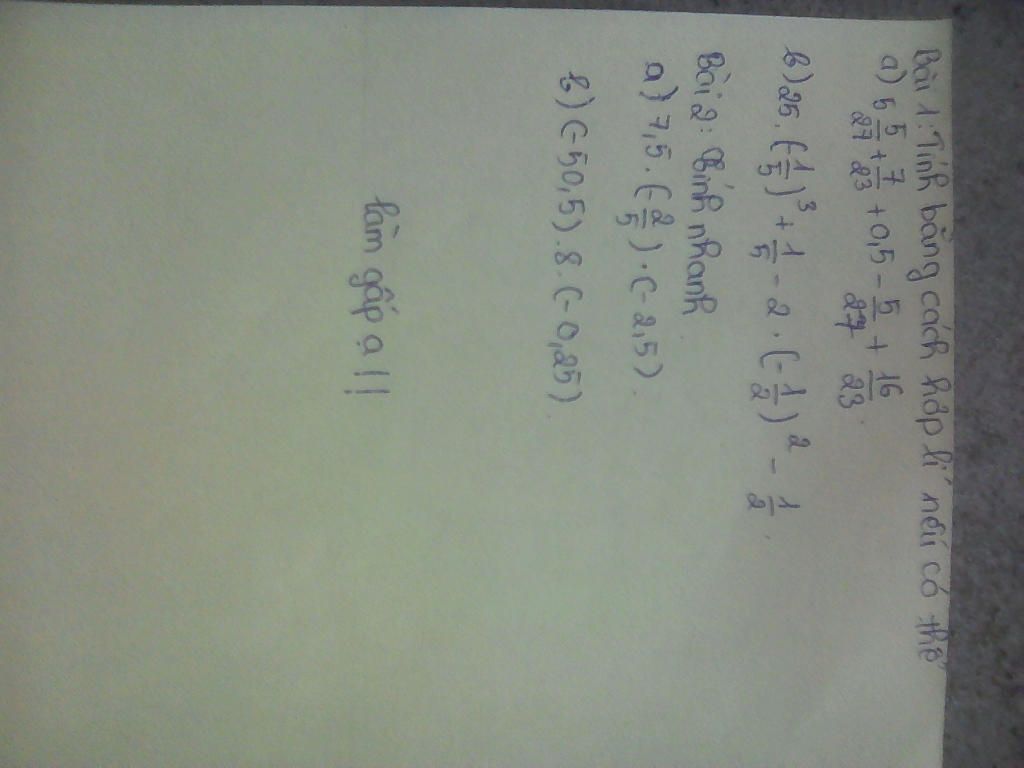 Bài 1: Tính bằng cách hợp lí nếu có thể
a) 5 5/27 + 7/23 + 0,5 - 5/27 + 16/23
b) 25 . (-1/5)³ + 1/5 - 2 . (-1/2)² - 1/2
Bài 2: Tính nhanh
a) 7,5 . (-2/5) . (-2,5)
b) (-50,5) . 8 . (-0,25)
làm gấp ạ !!